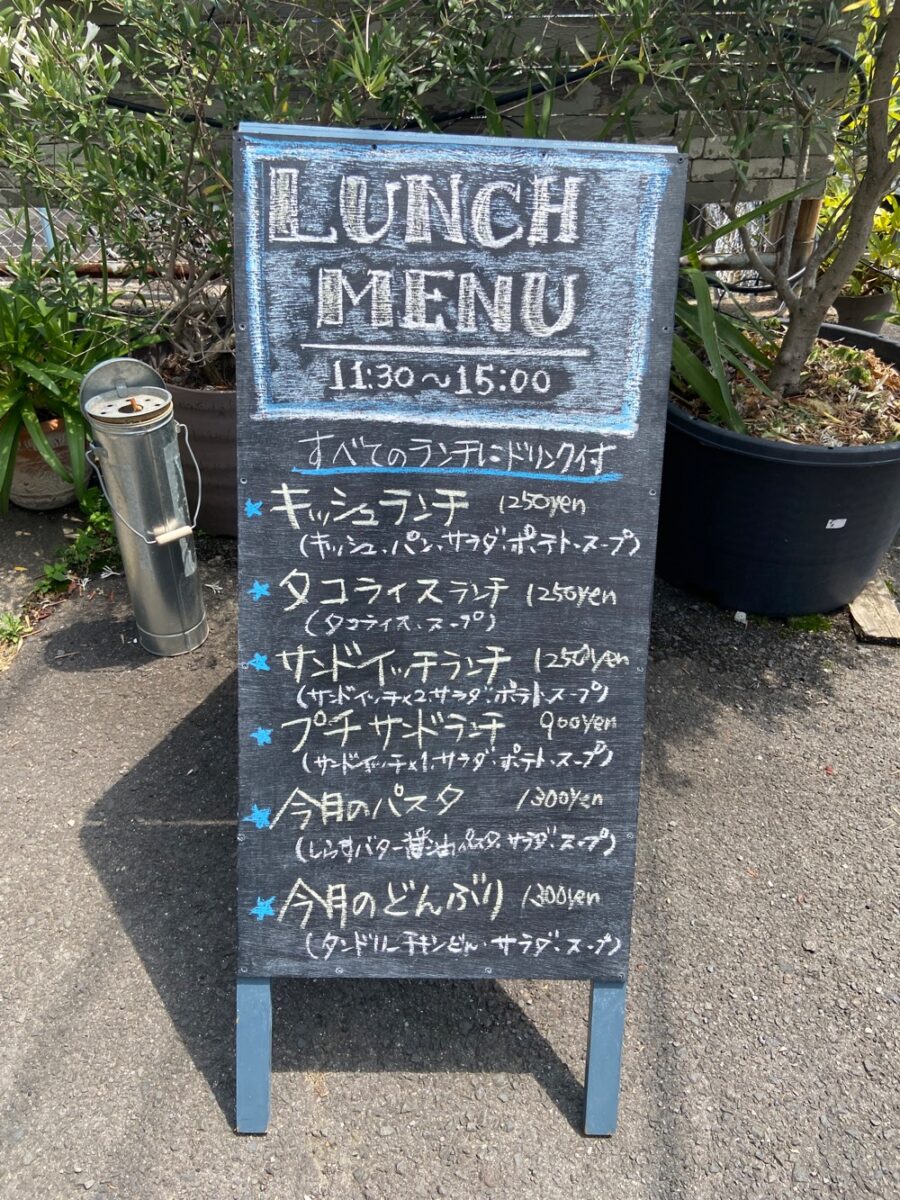 LUNCH
MENU
11:30～15:00
すべてのランチにドリンク付
キッシュランチ 1250yen
(キッシュ・パン・サラダ・ポテト・スープ)
タコライスランチ 1250yen
(タコライス・スープ)
サンドイッチランチ 1250yen
(サンドイッチ×2・サラダ・ポテト・スープ)
プチサンドランチ 900yen
(サンドイッチ×1・サラダ・ポテト・スープ)
今月のパスタ 1300yen
(しらすバター醤油パスタ・サラダ・スープ)
今月のどんぶり 1300yen
(タンドリーチキンどん・サラダ・スープ)